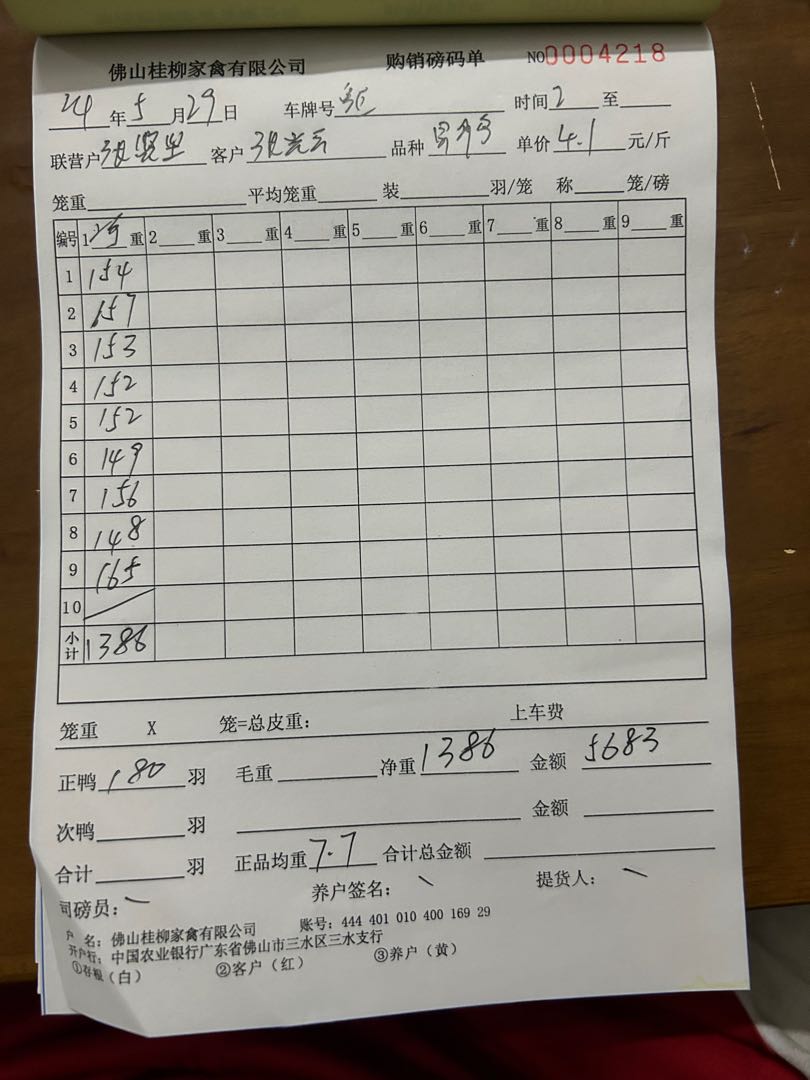 佛山桂柳家禽有限公司 购销磅码单 NO0004218
24年5月29日 车牌号 时间2至
联营户张贤 客户张 品种 单价4.1元/斤
笼重 平均笼重 装 羽/笼 称 笼/磅
编号 1 净 重 2 重 3 重 4 重 5 重 6 重 7 重 8 重 9 重
1 154
2 157
3 153
4 152
5 152
6 149
7 156
8 148
9 165
10
小计 1386
笼重 X 笼=总皮重: 上车费
正鸭180羽 毛重 净重1386 金额5683
次鸭 羽 金额
合计 羽 正品均重7.7 合计总金额
司磅员: 养户签名: 提货人:
户 名: 佛山桂柳家禽有限公司 账号: 444 401 010 400 169 29
开户行: 中国农业银行广东省佛山市三水区三水支行
①存根(白) ②客户(红) ③养户(黄)